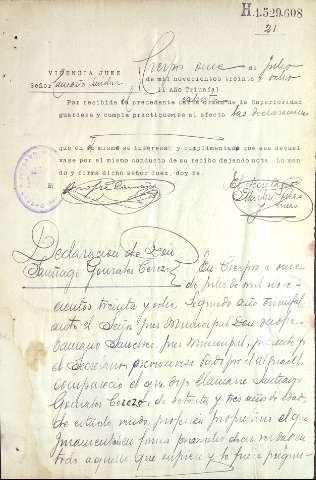 H.1.529.608
21
VIGENCIA JUEZ
Señor
Crespos once de Julio
de mil novecientos treinta y ocho
II AÑO Triunfal
Por recibida la precedente carta orden de la Superioridad
guardese y cumpla practiquense al efecto las declaraciones
que en el mismo se interesan y cumplimentado que sea devuel
vase por el mismo conducto de su recibo dejando nota lo man
do y firma dicho señor juez, doy fe.
El Secretario
Declaracion de Don
Santiago Gonzalez Cerezo
En Crespos a once
de Julio de mil nove-
cientos treinta y ocho, segundo año triunfal
ante el Señor Juez Municipal Don
Sanchez, Juez Municipal,
el Secretario
comparecio el que dijo llamarse Santiago
Gonzalez Cerezo, de setenta y tres años de edad,
de estado viudo, profesion propietario el que
juramentado en forma prometio decir verdad en
todo aquello que supiere y le fuere pregun-